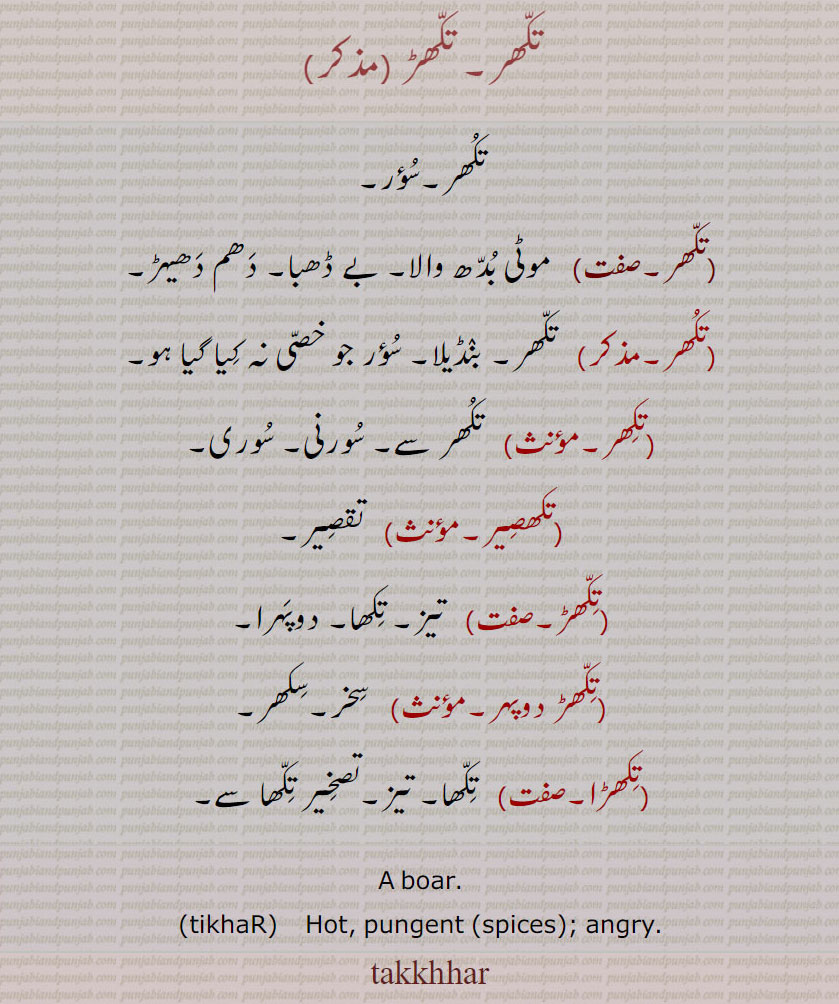 تکّھر۔ تکّھڑ (مذکر)
تکُھر۔سُؤر۔
(تکّھر۔صفت) موٹی بُدّھ والا۔ بے ڈھبا۔ دَھم دَھیڑ۔
(تکُھر۔مذکر) تکّھر۔ بنْڈیلا۔ سُؤر جو خصّی نہ کِیا گیا ہو۔
(تکِھر۔مؤنث) تکُھر سے۔ سُورنی۔ سُوری۔
(تکھصِیر۔مؤنث) تقصِیر۔
(تِکّھڑ۔صفت) تیز۔ تِکھا۔ دوپَہرا۔
(تِکّھڑ دوپہر۔مؤنث) سِخر۔سِکھر۔
(تِکھڑا۔صفت) تِکّھا۔ تیز۔تصخِیر تِکّھا سے۔
A boar.
(tikhaR) Hot, pungent (spices); angry.
takkhhar